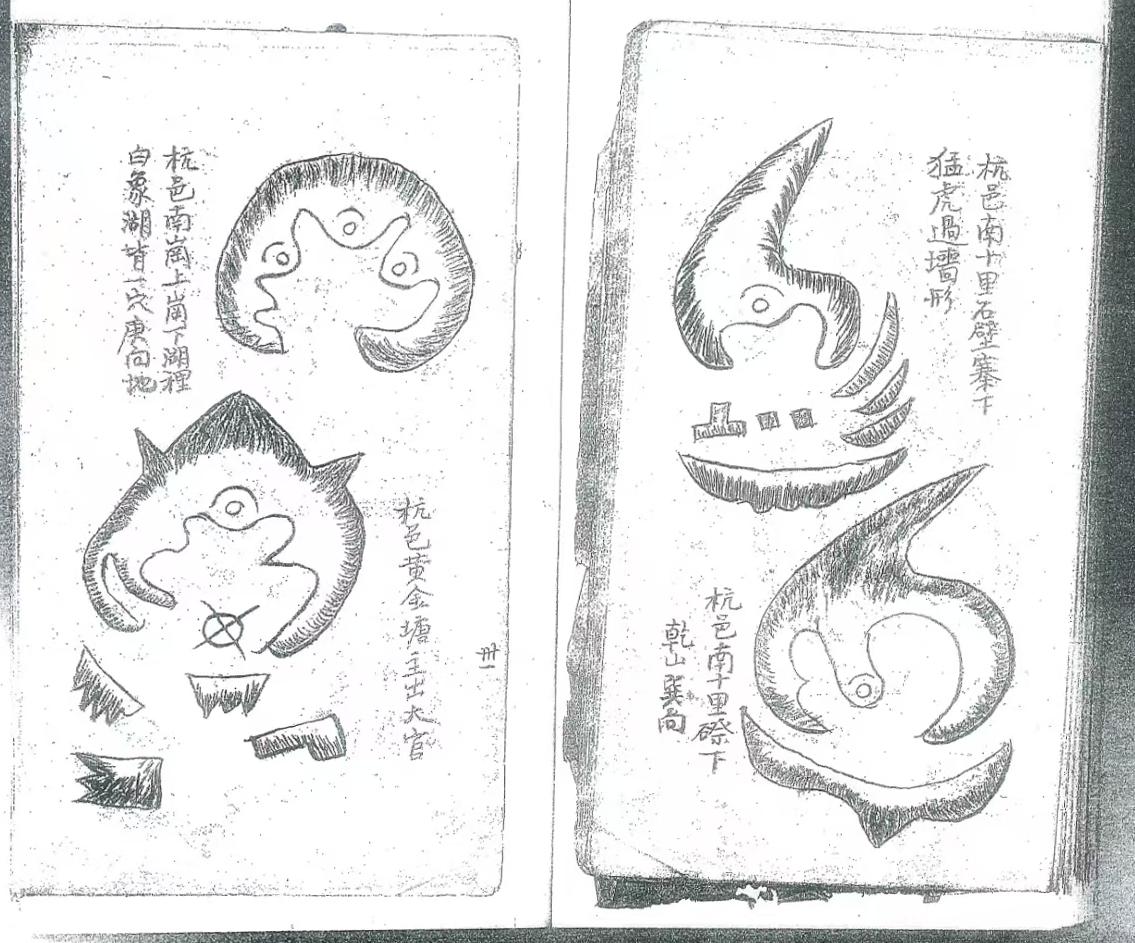 杭邑南十里石壁寨下
猛虎過墻形
杭邑南十里磜下
乾山巽向
杭邑南崗上崗下湖裡
白象湖皆一穴庚向地
杭邑黄金塘主出大官
卅一